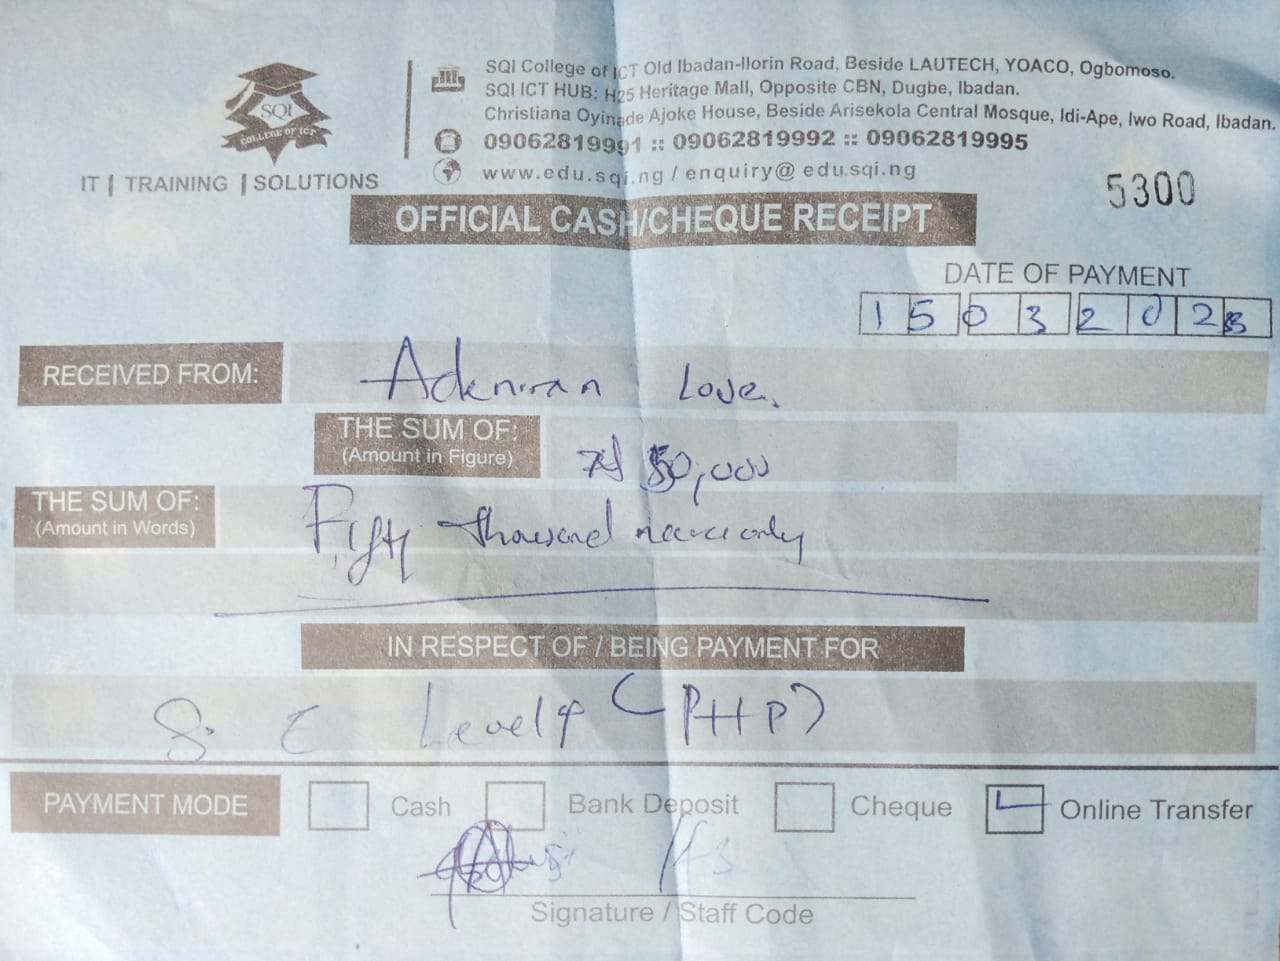 SQI
COLLEGE OF ICT
IT | TRAINING | SOLUTIONS
SQI College of ICT Old Ibadan-Ilorin Road, Beside LAUTECH, YOACO, Ogbomoso.
SQI ICT HUB: H25 Heritage Mall, Opposite CBN, Dugbe, Ibadan.
Christiana Oyinade Ajoke House, Beside Arisekola Central Mosque, Idi-Ape, Iwo Road, Ibadan.
09062819991 :: 09062819992 :: 09062819995
www.edu.sqi.ng / enquiry@ edu.sqi.ng
5300
OFFICIAL CASH/CHEQUE RECEIPT
DATE OF PAYMENT
15032023
RECEIVED FROM: Adeniran Love.
THE SUM OF: ₦ 50,000
(Amount in Figure)
THE SUM OF: Fifty thousand naira only
(Amount in Words)
IN RESPECT OF / BEING PAYMENT FOR
S. E Level 4 (PHP)
PAYMENT MODE Cash Bank Deposit Cheque Online Transfer
Signature / Staff Code